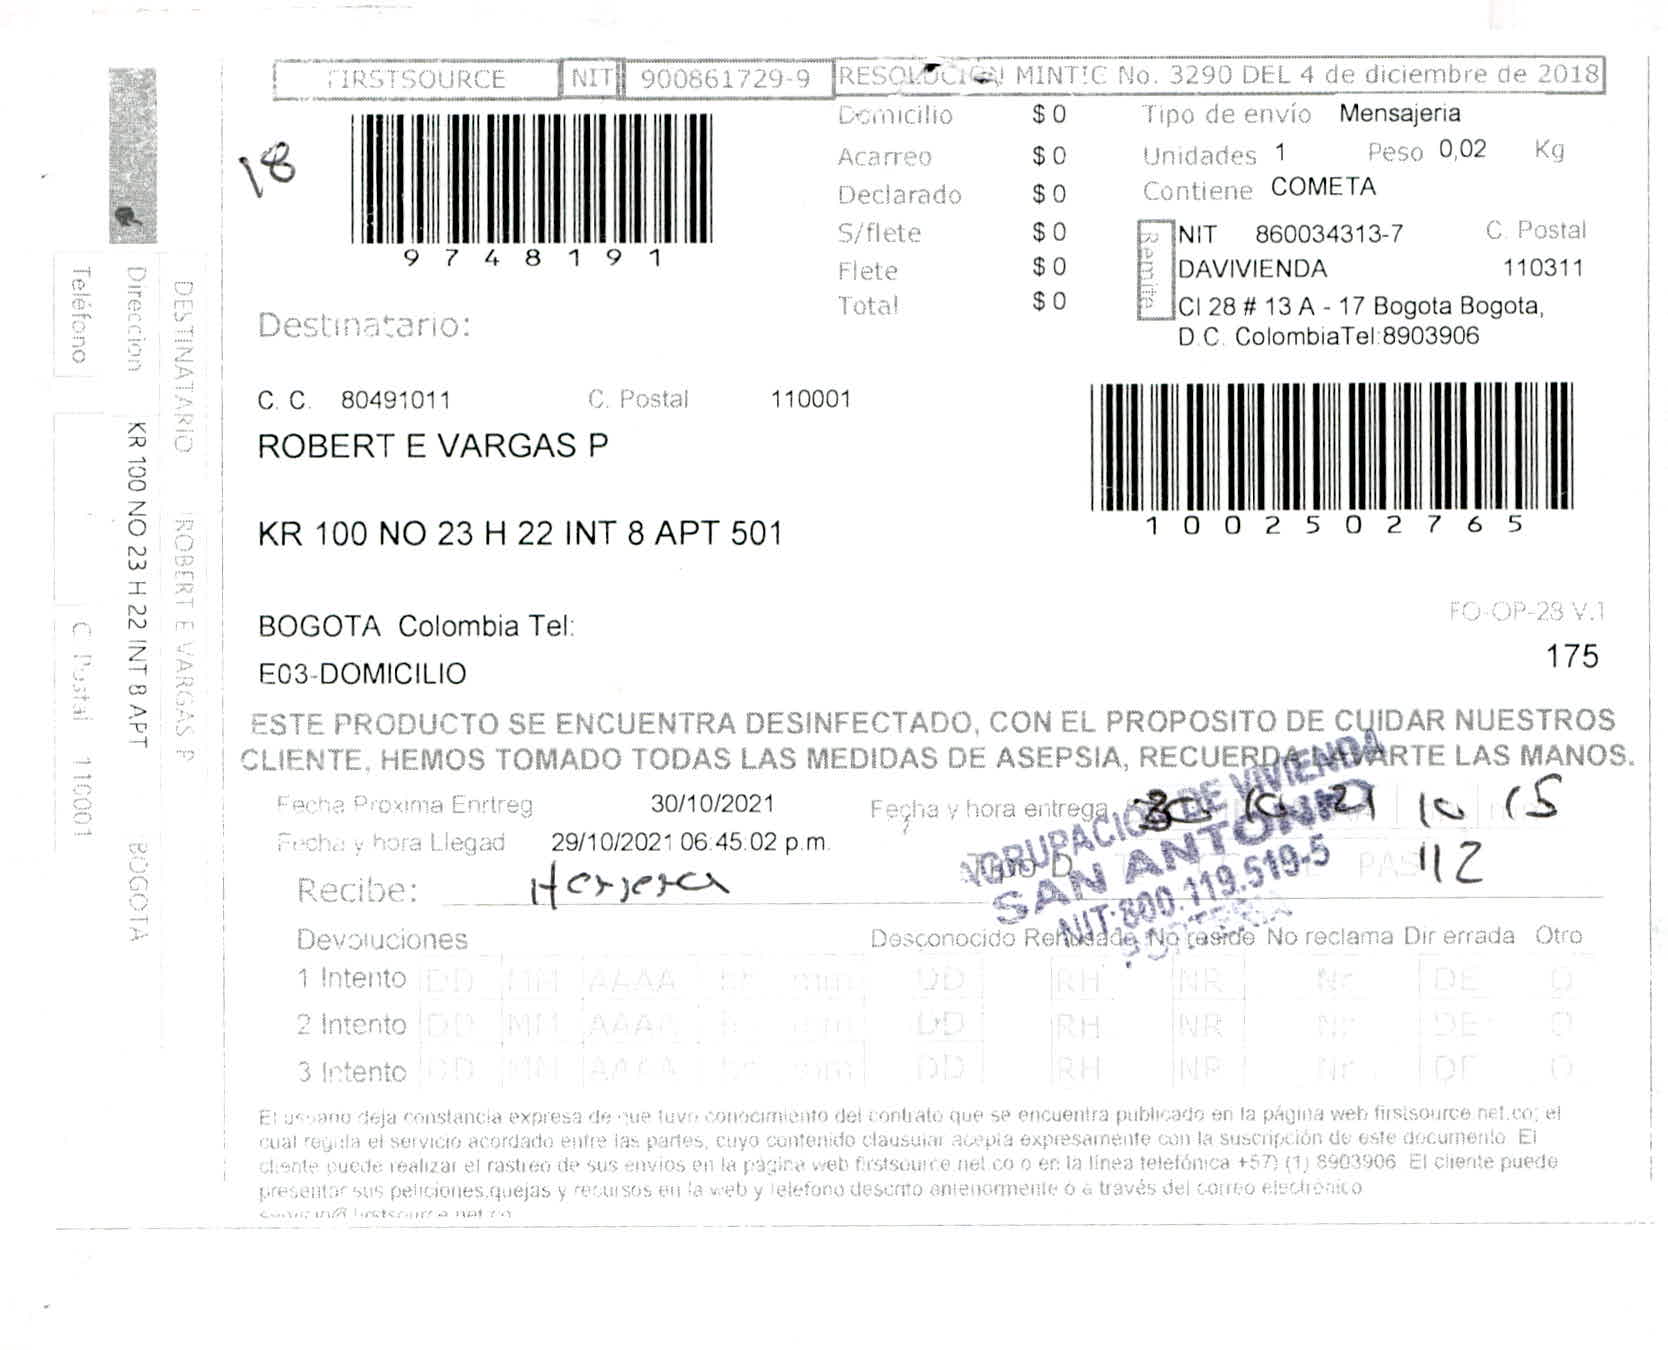 FIRSTSOURCE NIT 900861729-9 RESOLUCION MINTIC No. 3290 DEL 4 de diciembre de 2018
18
9748191
Domicilio $ 0
Acarreo $ 0
Declarado $ 0
S/flete $ 0
Flete $ 0
Total $ 0
Tipo de envío Mensajeria
Unidades 1 Peso 0,02 Kg
Contiene COMETA
Remite
NIT 860034313-7 C. Postal
DAVIVIENDA 110311
Cl 28 # 13 A - 17 Bogota Bogota,
D.C. ColombiaTel:8903906
Destinatario:
C. C. 80491011 C. Postal 110001
ROBERT E VARGAS P
1002502765
KR 100 NO 23 H 22 INT 8 APT 501
BOGOTA Colombia Tel:
FO-OP-28 V.1
175
E03-DOMICILIO
ESTE PRODUCTO SE ENCUENTRA DESINFECTADO, CON EL PROPOSITO DE CUIDAR NUESTROS
CLIENTE, HEMOS TOMADO TODAS LAS MEDIDAS DE ASEPSIA, RECUERDA LAVARTE LAS MANOS.
Fecha Proxima Enrtreg 30/10/2021 Fecha y hora entrega 30 10 21 10 15
Fecha y hora Llegad 29/10/2021 06:45:02 p.m.
Recibe: Herrera
112
AGRUPACIÓN DE VIVIENDA
SAN ANTONIO
NIT:800.119.519-5
PORTERIA
Devoluciones Desconocido Rehusado No reside No reclama Dir errada Otro
1 Intento DD MM AAAA hh mm DD RH NR Nr DE O
2 Intento DD MM AAAA hh mm DD RH NR Nr DE O
3 Intento DD MM AAAA hh mm DD RH NR Nr DE O
El usuario deja constancia expresa de que tuvo conocimiento del contrato que se encuentra publicado en la página web firstsource.net.co; el
cual regula el servicio acordado entre las partes, cuyo contenido clausular acepta expresamente con la suscripción de este documento. El
cliente puede realizar el rastreo de sus envios en la página web firstsource.net.co o en la línea telefónica +57) (1) 8903906 El cliente puede
presentar sus peticiones,quejas y recursos en la web y telefono descrito anteriormente o a través del correo electrónico
DESTINATARIO ROBERT E VARGAS P
Direccion KR 100 NO 23 H 22 INT 8 APT BOGOTA
Teléfono C. Postal 110001